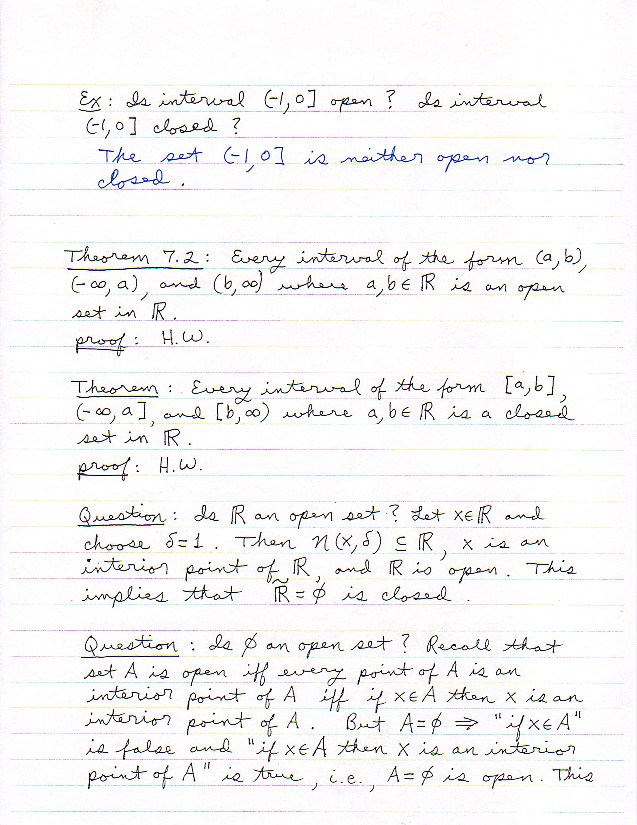 Ex: Is interval (-1,0] open? Is interval
(-1,0] closed?
The set (-1,0] is neither open nor
closed.
Theorem 7.2: Every interval of the form (a,b),
(-∞,a), and (b,∞) where a,b∈ℝ is an open
set in ℝ.
proof: H.W.
Theorem: Every interval of the form [a,b],
(-∞,a], and [b,∞) where a,b∈ℝ is a closed
set in ℝ.
proof: H.W.
Question: Is ℝ an open set? Let x∈ℝ and
choose δ=1. Then n(x,δ) ⊆ ℝ, x is an
interior point of ℝ, and ℝ is open. This
implies that ℝ̃ = ϕ is closed.
Question: Is ϕ an open set? Recall that
set A is open iff every point of A is an
interior point of A iff if x∈A then x is an
interior point of A. But A=ϕ ⇒ "if x∈A"
is false and "if x∈A then x is an interior
point of A" is true, i.e., A=ϕ is open. This